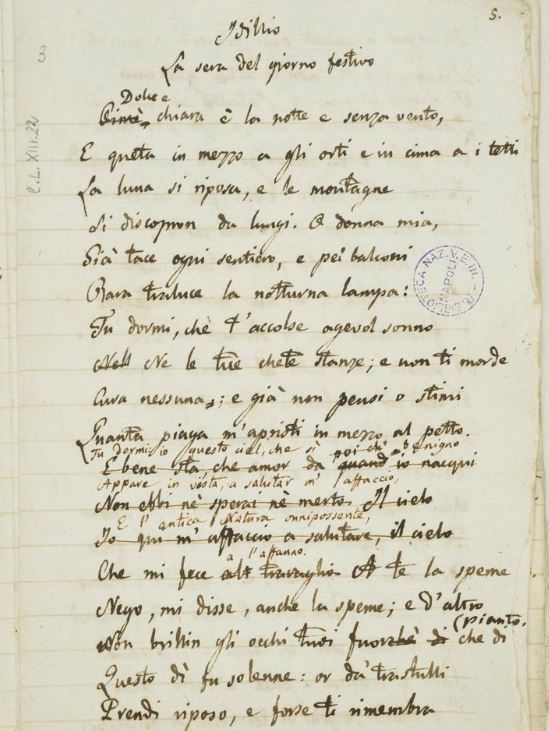 5.
3
C.L.XIII.22
Idillio
La sera del giorno festivo
Dolce e
Oimè, chiara è la notte e senza vento,
E queta in mezzo a gli orti e in cima a i tetti
La luna si riposa, e le montagne
Si discopron da lungi. O donna mia,
Già tace ogni sentiero, e pei balconi
Rara traluce la notturna lampa:
Tu dormi, chè t'accolse agevol sonno
Nell Ne le tue chete stanze; e non ti morde
Cura nessuna; e già non pensi o stimi
Quanta piaga m'apristi in mezzo al petto.
Tu dormi: io questo ciel, che sì benigno
poi ch'
E bene sta, che amor da quand' io nacqui
Appare in vista, a salutar m'affaccio,
Non ebbi nè sperai nè merto. Il cielo
E l'antica Natura onnipossente,
Io qui m'affaccio a salutare, il cielo
a l'affanno.
Che mi fece al travaglio. A te la speme
Nego, mi disse, anche la speme; e d'altro
Non brillin gli occhi tuoi fuorchè di che di
(pianto.
Questo dì fu solenne: or da' trastulli
Prendi riposo, e forse ti rimembra
NAZ. V. E. III.
NAPOLI